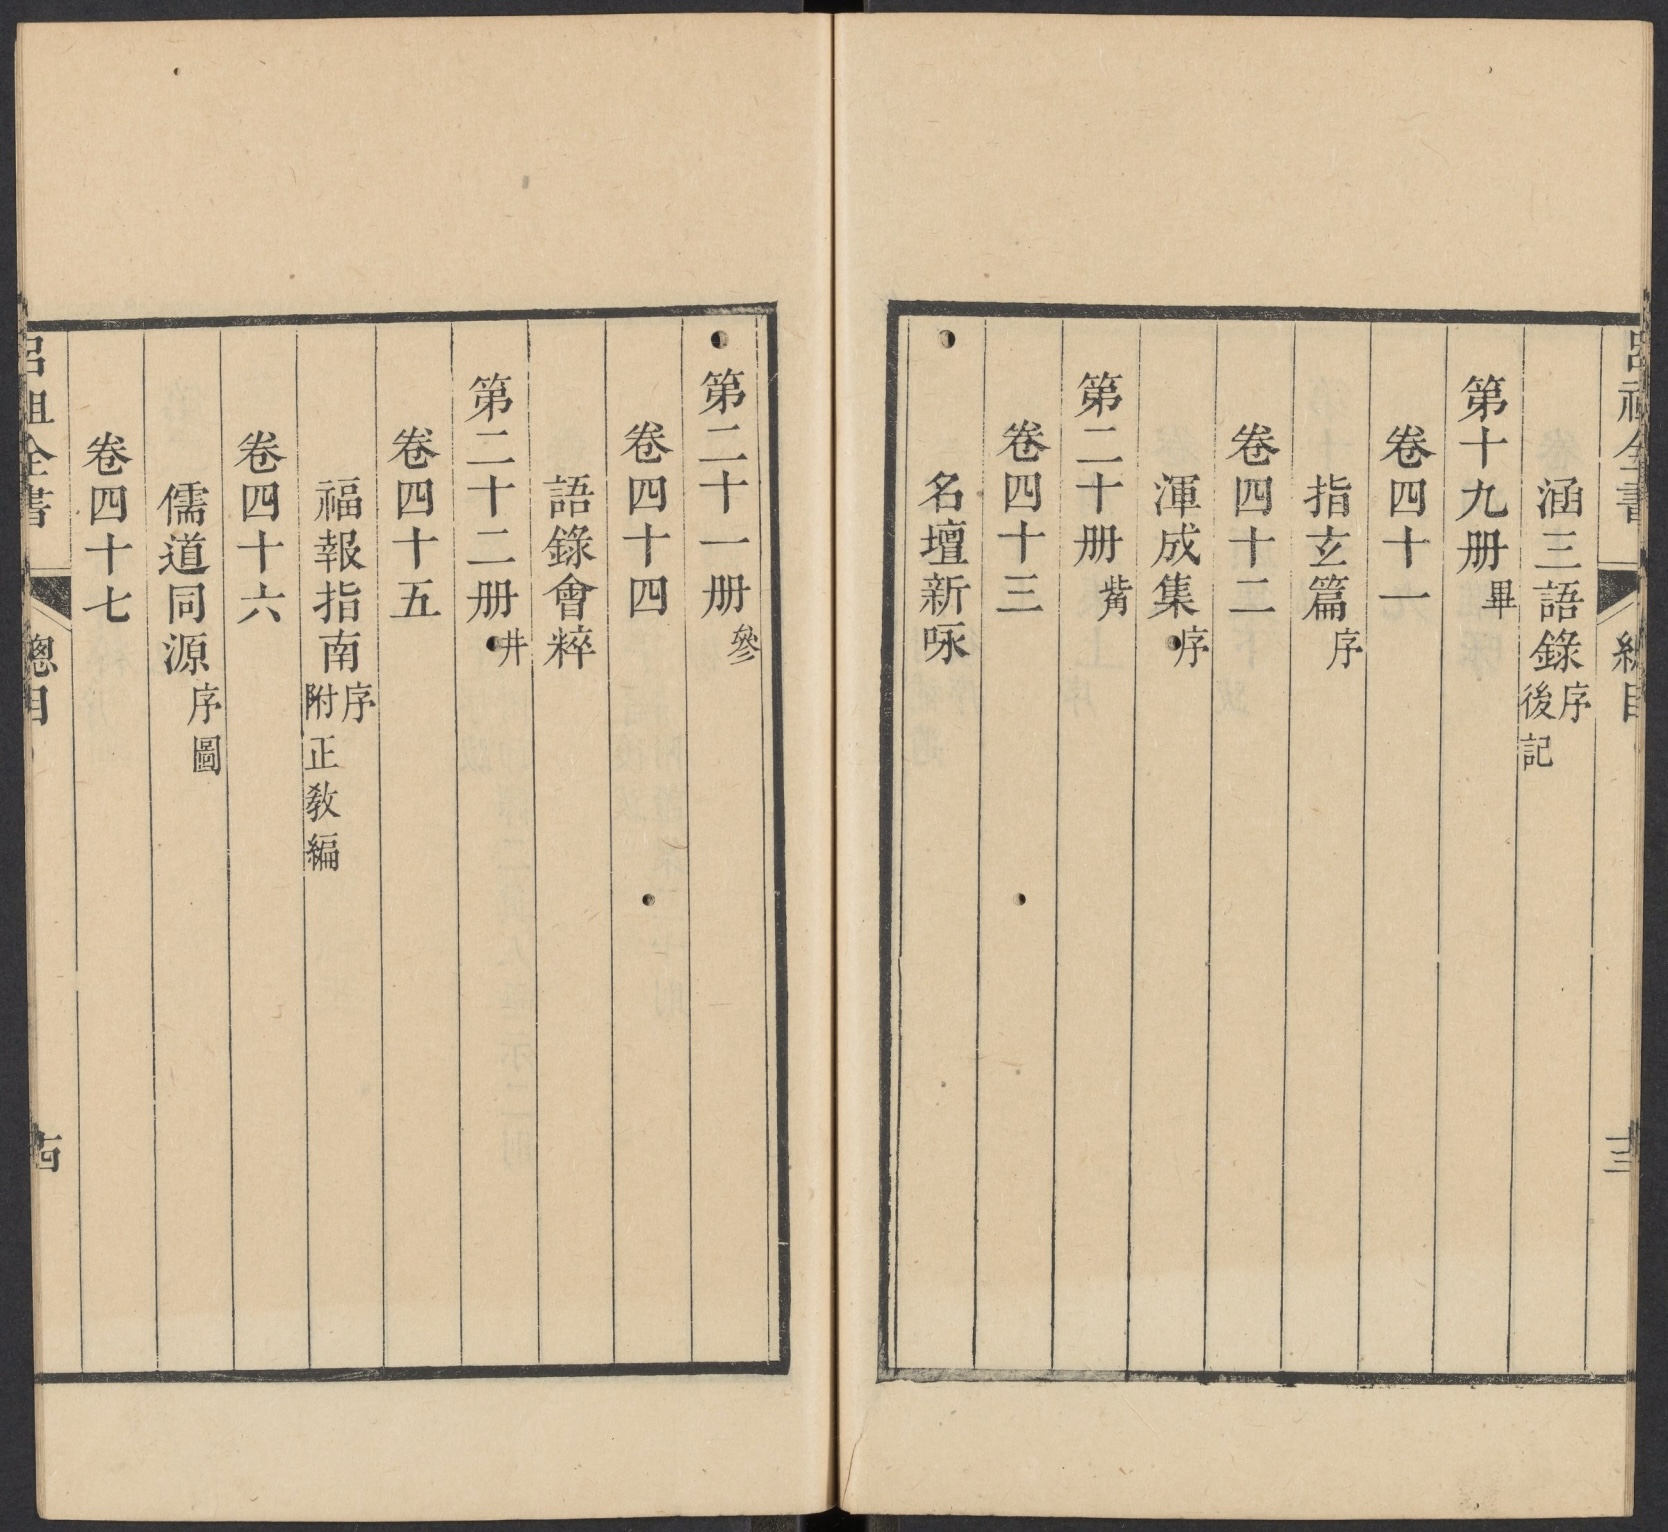 呂祖全書 總目 十三
涵三語錄 序 後記
第十九册 畢
卷四十一
指玄篇 序
卷四十二
渾成集 序
第二十册 觜
卷四十三
名壇新咏
第二十一册 參
卷四十四
語錄會粹
第二十二册 井
卷四十五
福報指南 序 附正教編
卷四十六
儒道同源 序 圖
卷四十七
呂祖全書 總目 十四